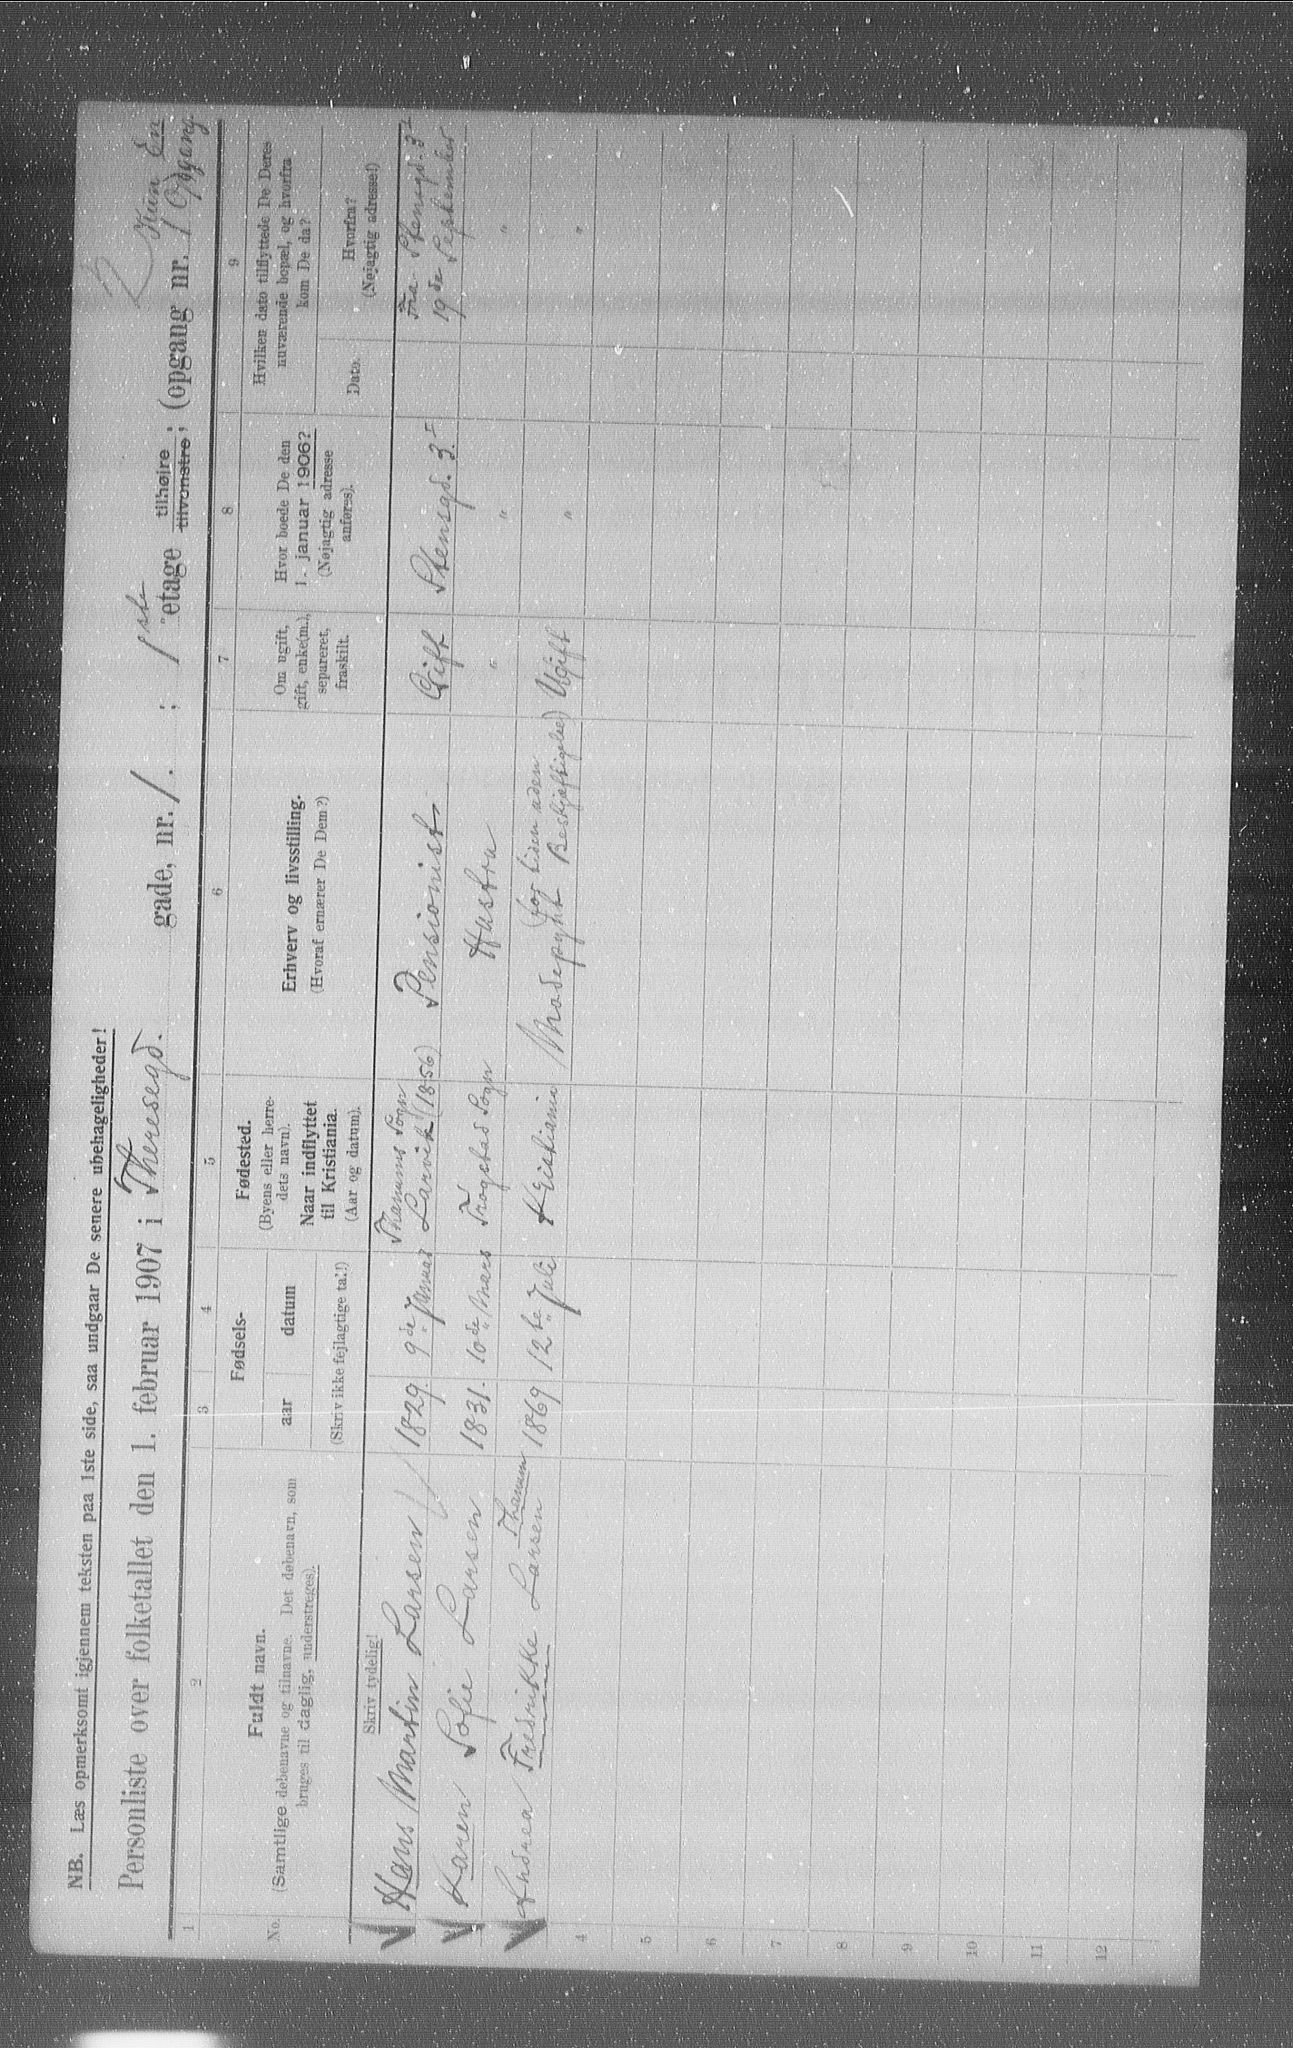 NB. Læs opmerksomt igjennem teksten paa 1ste side, saa undgaar De senere ubehageligheder!
2 Kun Én
Personliste over folketallet den 1. februar 1907 i Theresegd. gade, nr. 1. ; 1ste etage tilhøire tilvenstre; (opgang nr. 1 Opgang
1 2 3 4 5 6 7 8 9
No.
Fuldt navn.
(Samtlige døbenavne og tilnavne. Det døbenavn, som
bruges til daglig, understreges).
Skriv tydelig!
Fødsels-
aar datum
(Skriv ikke fejlagtige tal!)
Fødested.
(Byens eller herre-
dets navn).
Naar indflyttet
til Kristiania.
(Aar og datum).
Erhverv og livsstilling.
(Hvoraf ernærer De Dem?)
Om ugift,
gift, enke(m.),
separeret,
fraskilt.
Hvor boede De den
1. januar 1906?
(Nøjagtig adresse
anføres).
Hvilken dato tilflyttede De Deres
nuværende bopæl, og hvorfra
kom De da?
Dato.
Hvorfra?
(Nøjagtig adresse!)
Thanums Sogn
Hans Martin Larsen 1829. 9de Januar Larvik (1856) Pensionist Gift Stensgd. 3 I Fra Stensgd. 3 I
19de September
Karen Sofie Larsen 1831. 10de Mars Trøgstad Sogn Hustru " " "
Thanum (for tiden uden
Andrea Fredrikke Larsen 1869 12te Juli Kristiania Modepynt Beskjæftigelse) Ugift " "
4
5
6
7
8
9
10
11
12